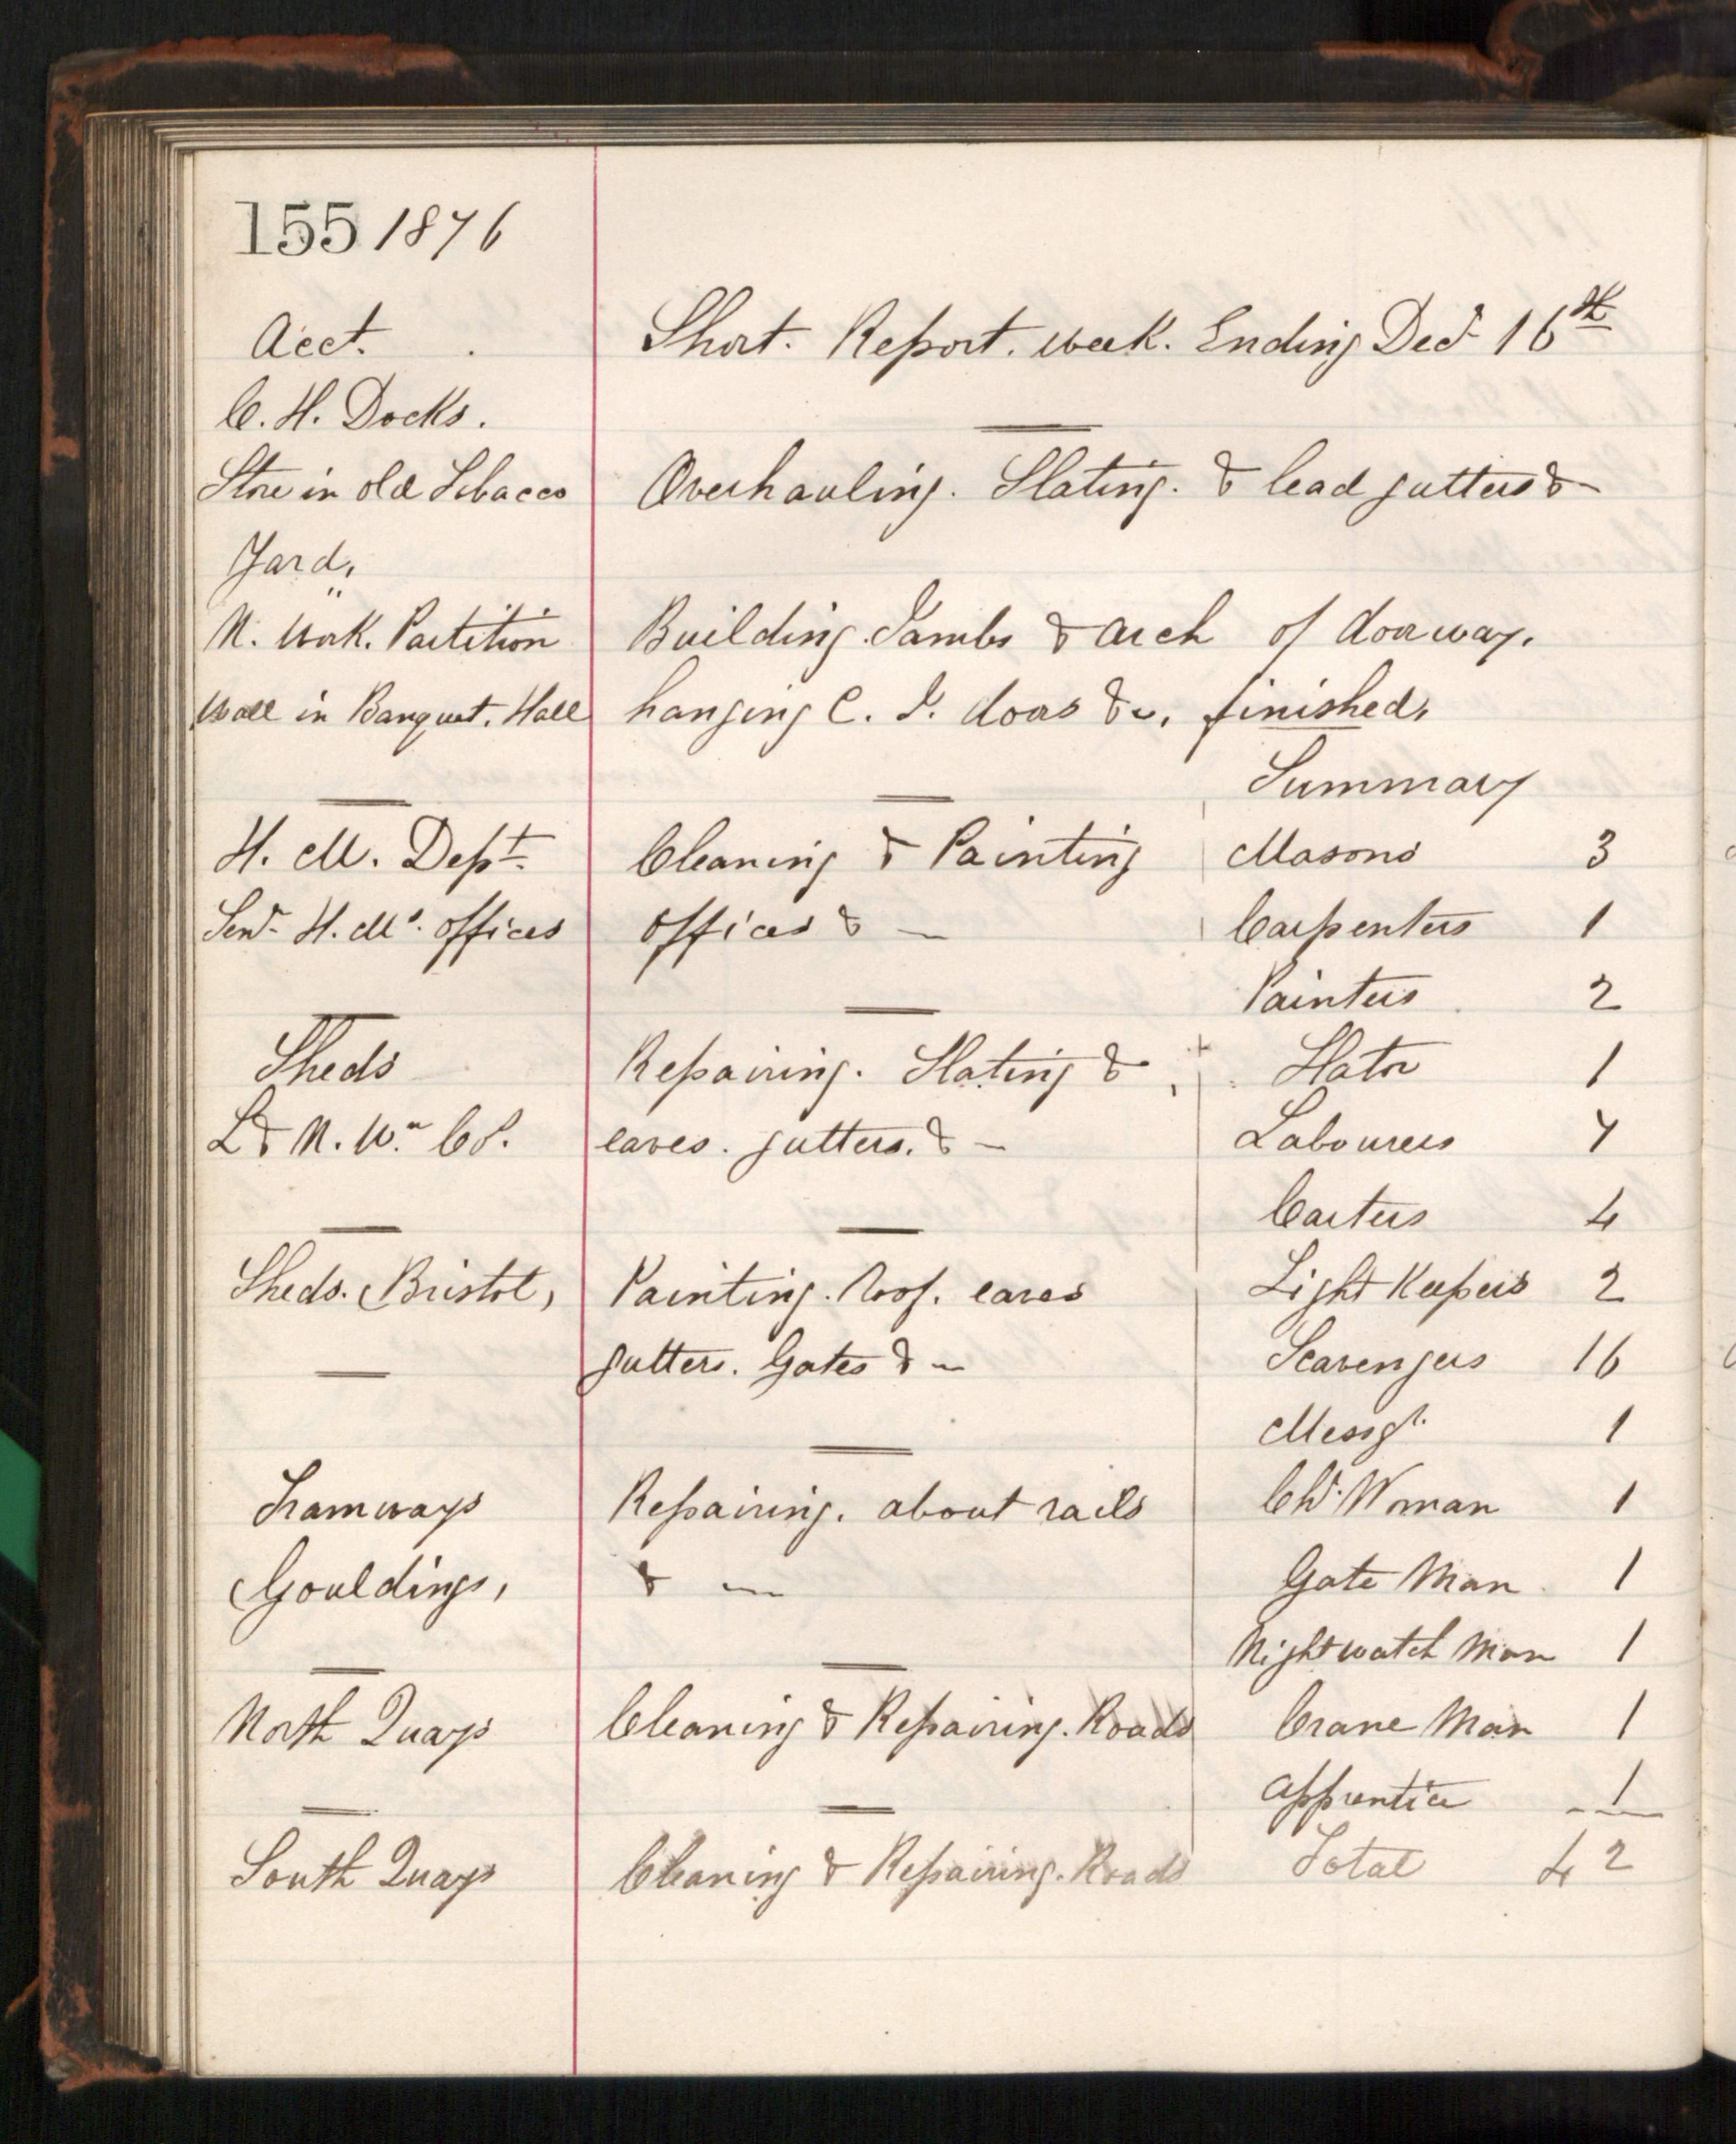 155 1876
Acct. Short. Report. week. Ending Decr 16th
C. H. Docks.
Store in old Tobacco Overhauling. Slating. & lead gutters &
Yard,
N. Work. Partition Building. Jambs & arch of doorway.
Wall in Banquet. Hall hanging C. I. doors &c, finished,
Summary
H. M. Dept. Cleaning & Painting Masons 3
H. Ms. offices offices & — Carpenters 1
Painters 2
Sheds Repairing. Slating & Slater 1
L & N. Wn Co. eaves. gutters. & — Labourers 7
Carters 4
Sheds. Bristol, Painting. Roof. eaves Light Keepers 2
gutters. Gates & — Scavengers 16
Messgr. 1
Tramways Repairing. about rails Woman 1
Gouldings, & — Gate Man 1
Night watch Man 1
North Quays Cleaning & Repairing. Roads Crane Man 1
Apprentice 1
South Quays Cleaning & Repairing. Roads Total 42